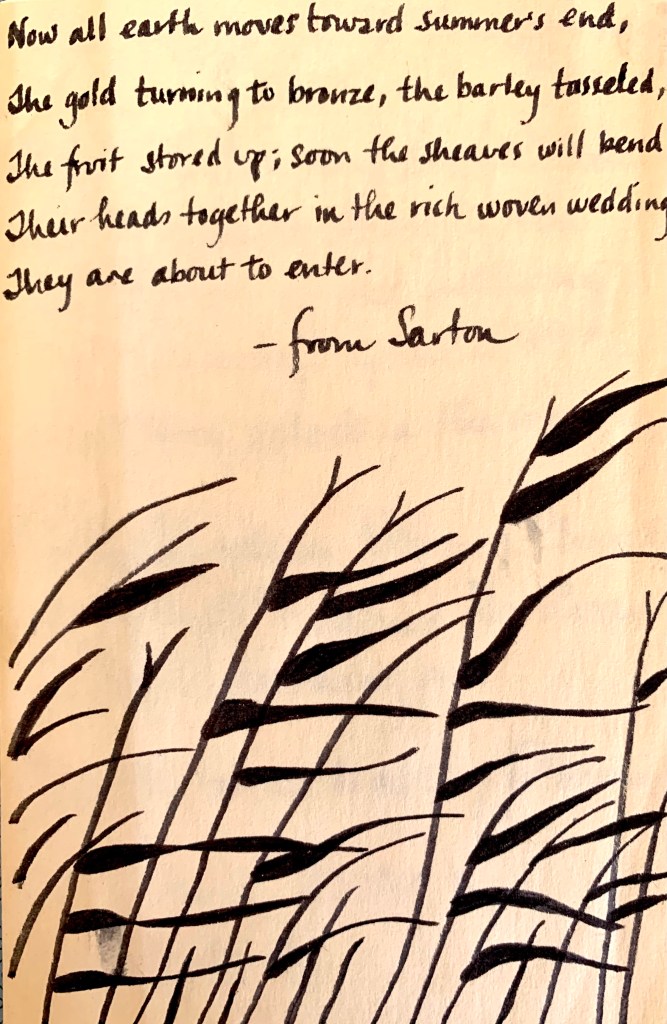 Now all earth moves toward summer's end,
The gold turning to bronze, the barley tasseled,
The fruit stored up; soon the sheaves will bend
Their heads together in the rich woven wedding
They are about to enter.
– from Sarton